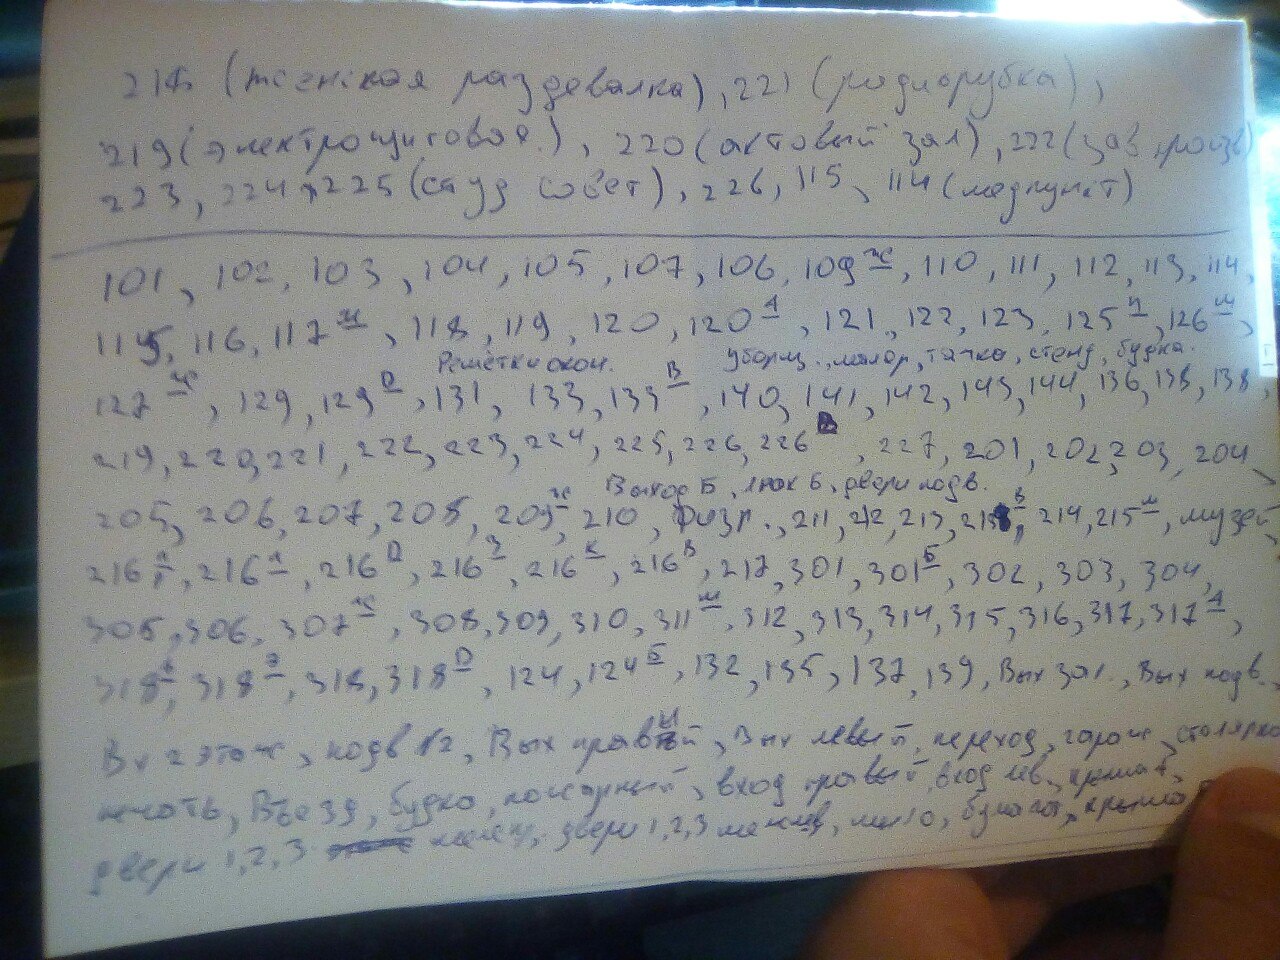 (женская раздевалка), 221 (радиорубка),
219 (электрощитовая), 220 (актовый зал), 222 (зав.
223, 224, 225 (студ совет), 226, 115, 114 (медпункт)
101, 102, 103, 104, 105, 107, 106, 109 ж, 110, 111, 112, 113, 114,
115, 116, 117, 118, 119, 120, 120 А, 121, 122, 123, 125 П, 126 м,
Решётки окон. уборщ., маляр, тачка, стенд, будка.
127 ж, 129, 129 D, 131, 133, 133 В, 140, 141, 142, 143, 144, 136, 138, 138,
219, 220, 221, 222, 223, 224, 225, 226, 226 В, 227, 201, 202, 203, 204
Выход Б, люк 6, двери подв.
205, 206, 207, 208, 209 ж, 210, физр., 211, 212, 213, 214, 215 м, музей,
216, 216 А, 216 D, 216, 216 К, 216 В, 217, 301, 301 Б, 302, 303, 304,
305, 306, 307 ж, 308, 309, 310, 311 м, 312, 313, 314, 315, 316, 317, 317 А,
318, 318, 318, 318 D, 124, 124 Б, 132, 135, 137, 139, Вых зал., Вых подв.,
Вх 2 этаж, подв 12, Вых правый, Вых левый, переход, гараж, столярка
печать, Въезд, будка, пожарный, вход правый, вход лев.,
двери 1, 2, 3 двери 1, 2, 3